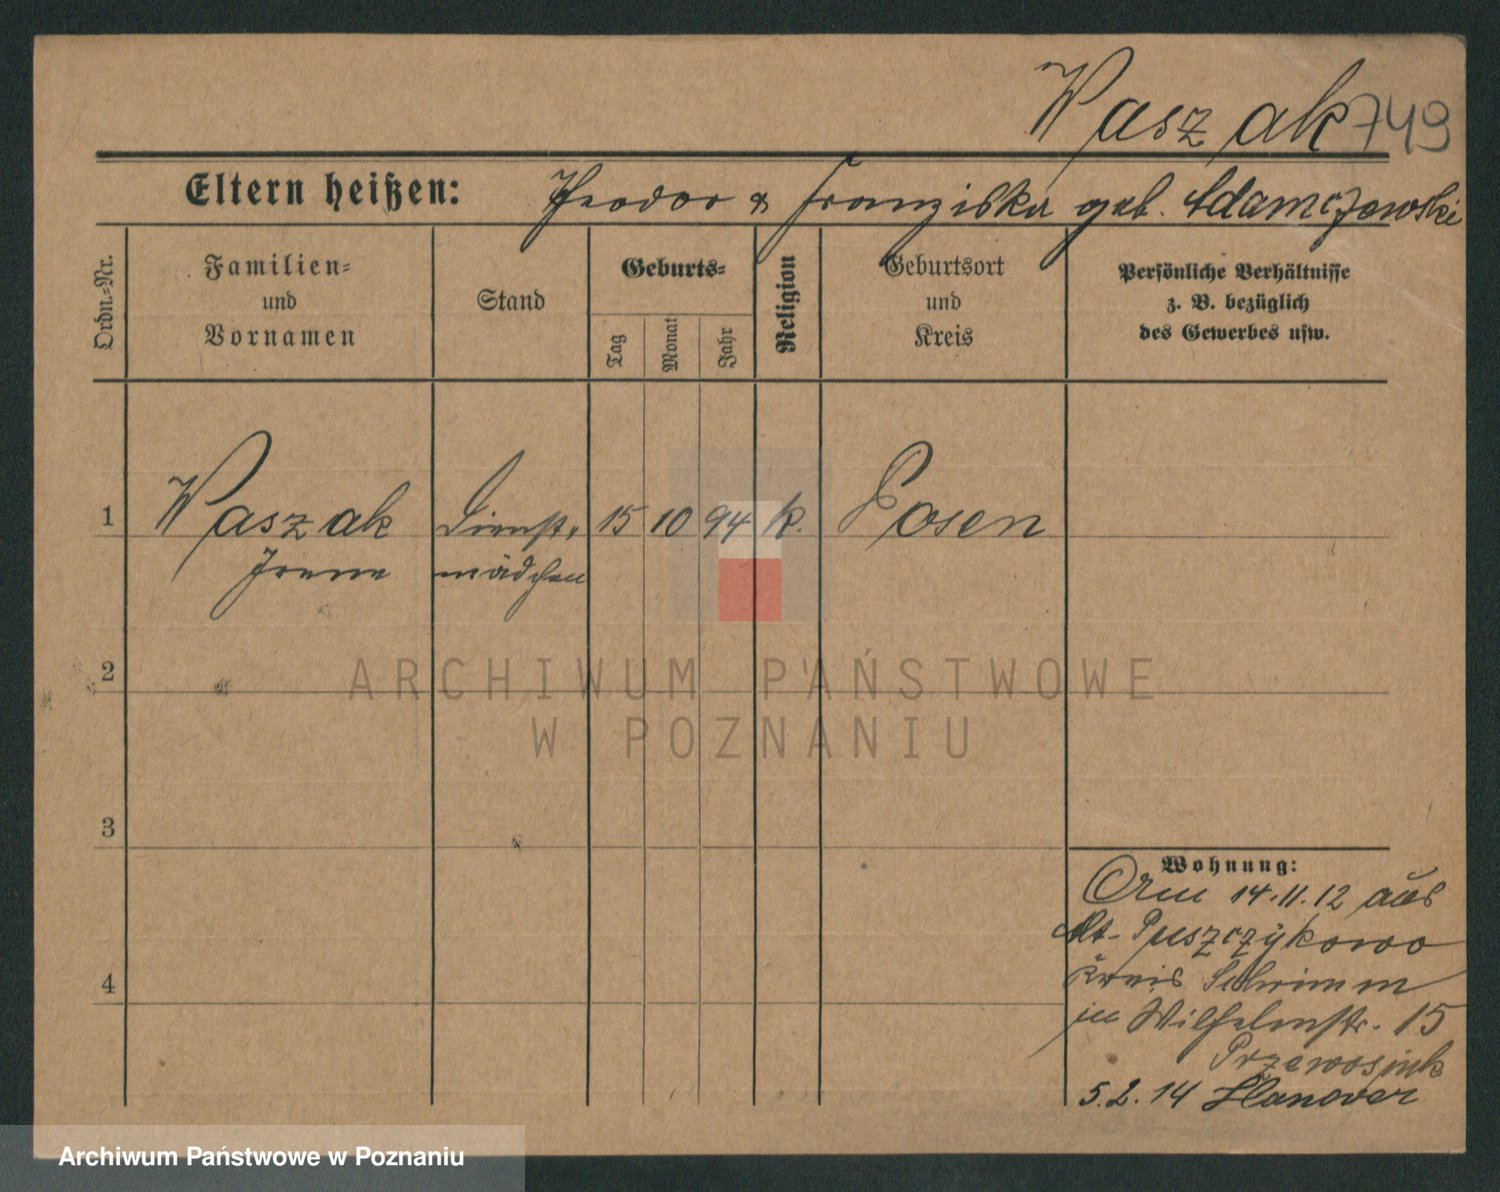 Waszak 749
Eltern heißen: Theodor & Franziska geb. Adamczewski
Ordn.-Nr.
Familien-
und
Vornamen
Stand
Geburts-
Tag
Monat
Jahr
Religion
Geburtsort
und
Kreis
Persönliche Verhältnisse
z. B. bezüglich
des Gewerbes usw.
1 Waszak Dienst- 15 10 94 k. Posen
Irene mädchen
2
ARCHIWUM PAŃSTWOWE
W POZNANIU
3
Wohnung:
14.11.12 aus
Alt-Puszczykowo
Kreis Schrimm
in Wilhelmstr. 15
4
5.2.14 Hanover
Archiwum Państwowe w Poznaniu